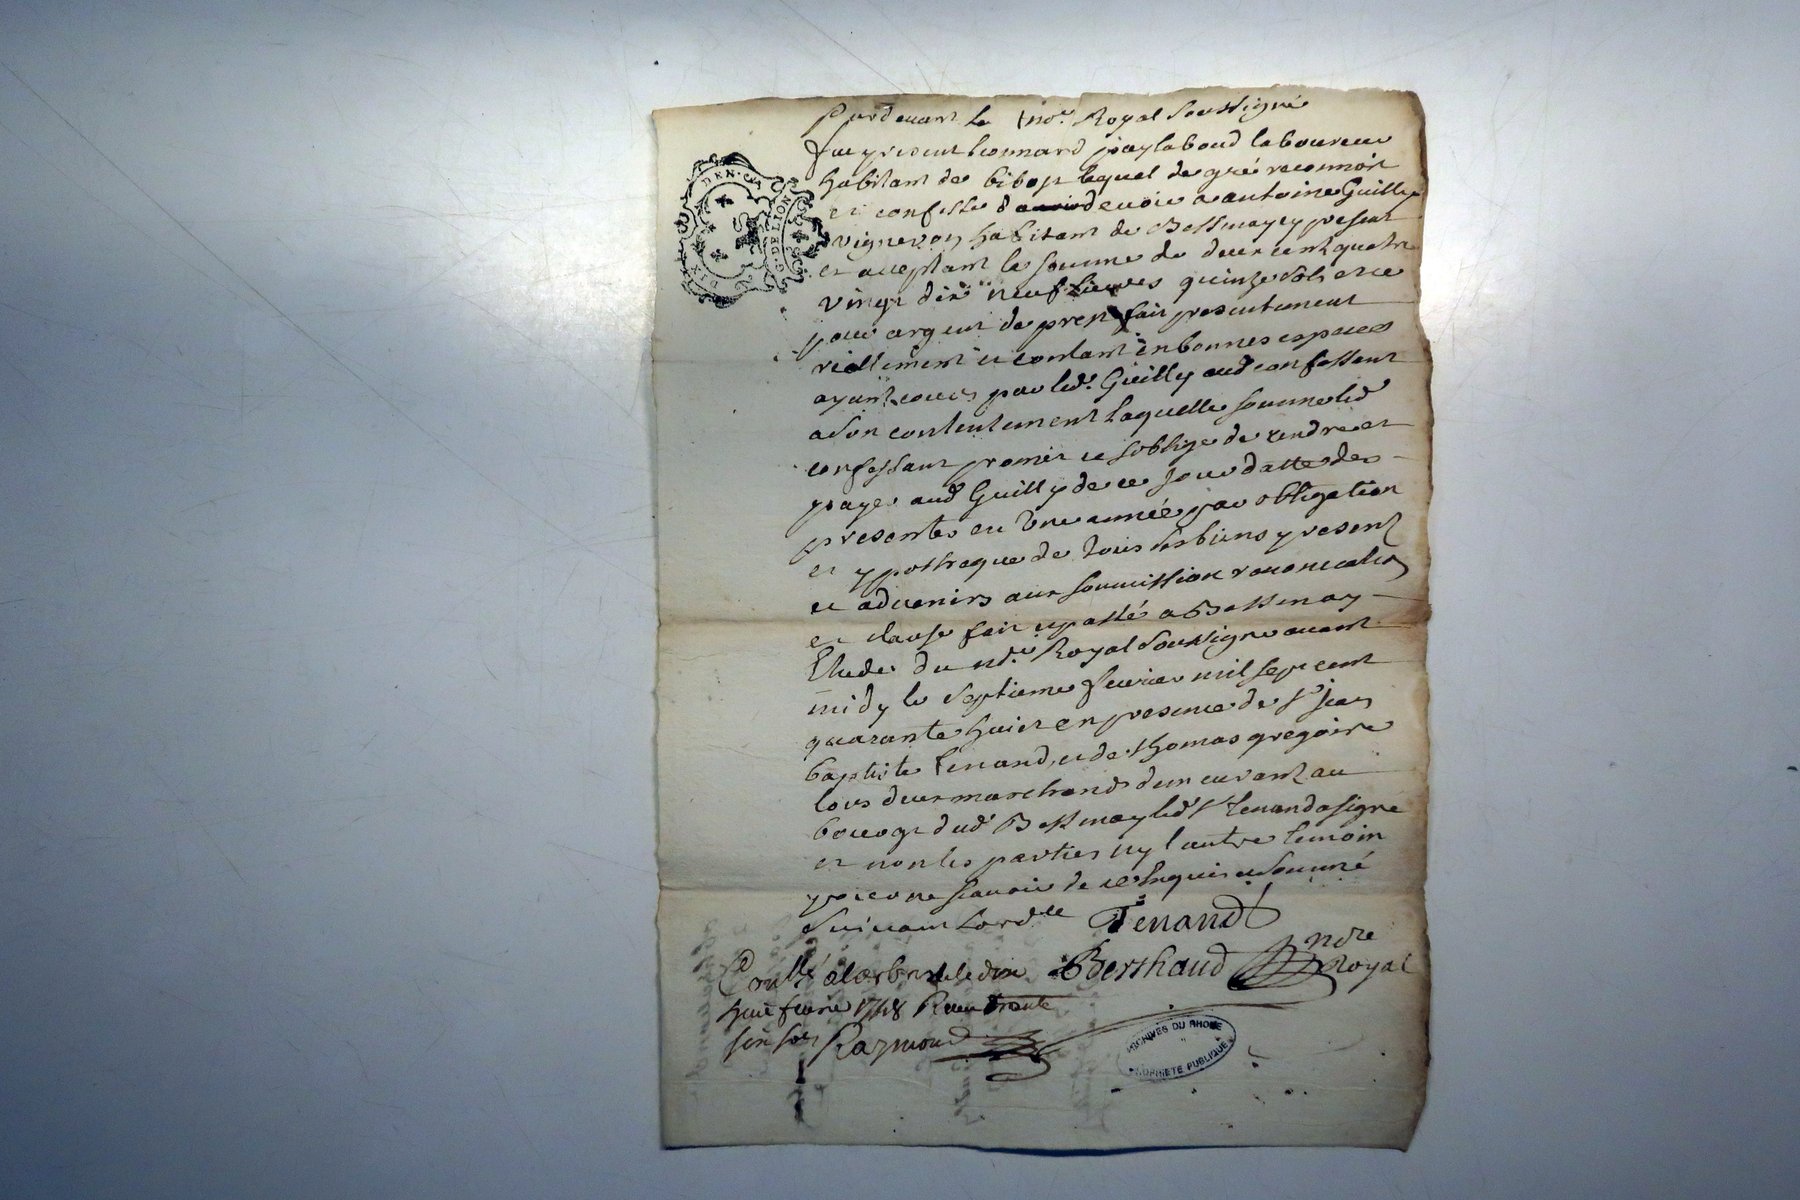 Pardevant le no.re Royal soussigné
fut present Leonnard paylaboud laboureur
habitant de bibost lequel de gré reconnoit
et confesse devoir a antoine Guilly
vigneron habitant de Bessenay present
et acceptant la somme de deux cent quatre
vingt dix neuf livres quinze sols et ce
pour argent de prest fait presentement
reellement et contant en bonnes especes
ayant cours par led. Guilly aud confessant
a son contentement laquelle somme led
confessant promet et soblige de rendre et
payer aud Guilly de ce jour datte des
presentes en une année par obligation
et ypotheque de tous ses biens present
et advenirs aux soumission renonciation
et clause fait et passé a Bessenay
Etude du no.re Royal soussigne avant
midy le septieme fevrier mil sept cent
quarante huict en presence de sr jean
baptiste Tenand, et de thomas gregoire
tous deux marchands demeurant au
bourg dud Bessenay led sr tenand a signé
et non les parties ny l'autre temoin
pour ne scavoir de ce enquis et sommé
suivant lord.ce Tenand
DIX DEN.
G.D.DE LION
Conllé a Larbresle le dix
Berthaud no.re
Royal
huit fevrie 1748 Receu trente
six sols Raymond
ARCHIVES DU RHONE
PROPRIETE PUBLIQUE